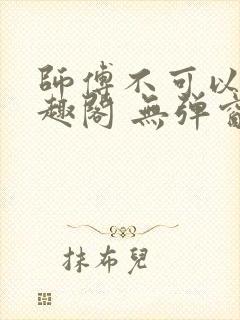 師傅不可以
趣閣 無彈窗
抹布兒